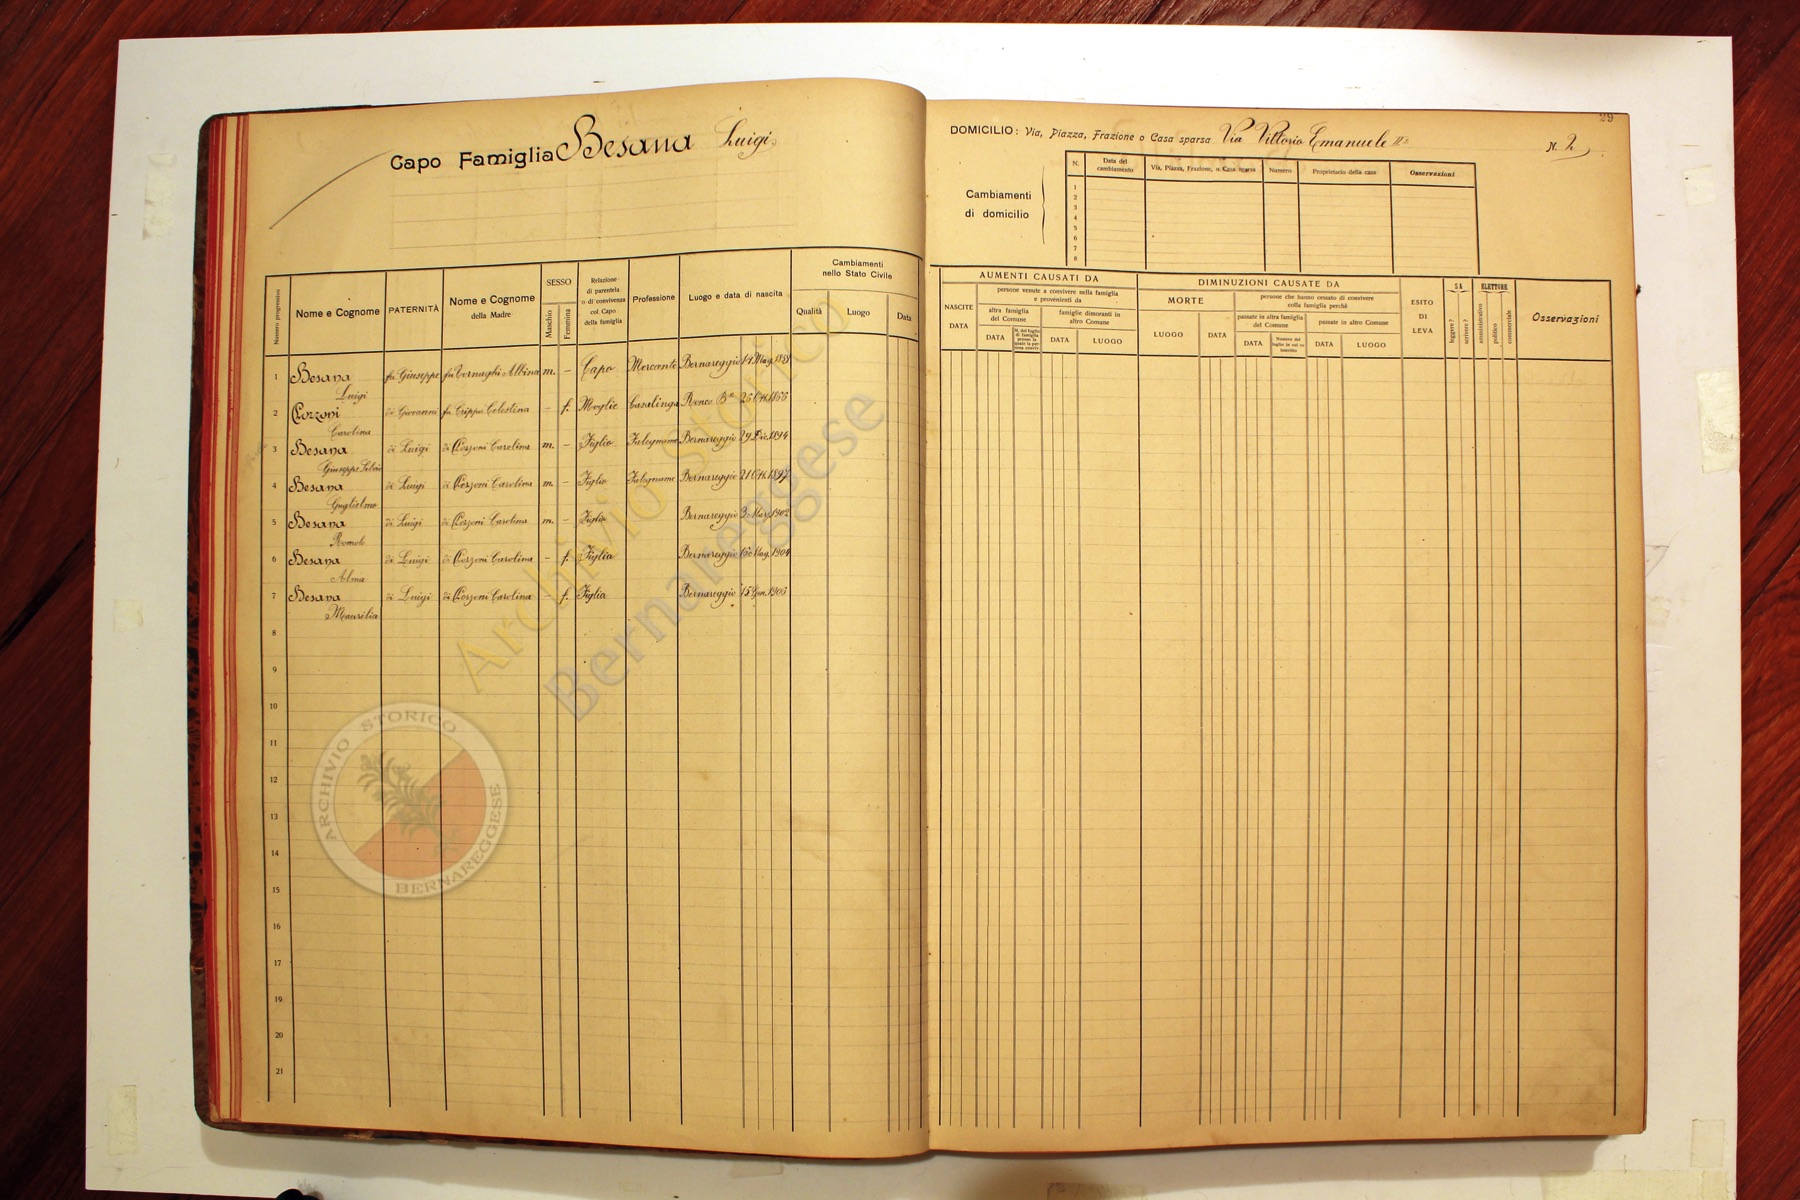 29
Capo Famiglia Besana Luigi
DOMICILIO: Via, Piazza, Frazione o Casa sparsa Via Vittorio Emanuele II° N. 2
Cambiamenti di domicilio
N. Data del cambiamento Via, Piazza, Frazione, o Casa sparsa Numero Proprietario della casa Osservazioni
1
2
3
4
5
6
7
8
Numero progressivo Nome e Cognome PATERNITÀ Nome e Cognome della Madre SESSO Maschio Femmina Relazione di parentela o di convivenza col Capo della famiglia Professione Luogo e data di nascita Cambiamenti nello Stato Civile Qualità Luogo Data
AUMENTI CAUSATI DA
NASCITE DATA
persone venute a convivere nella famiglia e provenienti da
altra famiglia del Comune DATA
famiglie dimoranti in altro Comune DATA LUOGO
DIMINUZIONI CAUSATE DA
MORTE LUOGO DATA
persone che hanno cessato di convivere colla famiglia perchè
passate in altra famiglia del Comune DATA Numero del foglio in cui fu inscritto
passate in altro Comune DATA LUOGO
ESITO DI LEVA
SA leggere? scrivere?
ELETTORE amministrativo politico commerciale
Osservazioni
1 Besana Luigi fu Giuseppe fu Vernaghi Albina m. – Capo Mercante Bernareggio
2 Pozzoni Carolina di Giovanni fu Crippa Celestina – f. Moglie Casalinga Ronco
3 Besana Giuseppe Silvio di Luigi di Pozzoni Carolina m. – Figlio Falegname Bernareggio 29 Dic. 1894
4 Besana Guglielmo di Luigi di Pozzoni Carolina m. – Figlio Falegname Bernareggio 21 Ott. 1897
5 Besana Romolo di Luigi di Pozzoni Carolina m. – Figlio Bernareggio 3 Mar. 1902
6 Besana Alma di Luigi di Pozzoni Carolina – f. Figlia Bernareggio Mag. 1904
7 Besana Maurilia di Luigi di Pozzoni Carolina – f. Figlia Bernareggio 15 Gen.
8
9
10
11
12
13
14
15
16
17
18
19
20
21
Archivio Storico
Bernareggese
ARCHIVIO STORICO
BERNAREGGESE